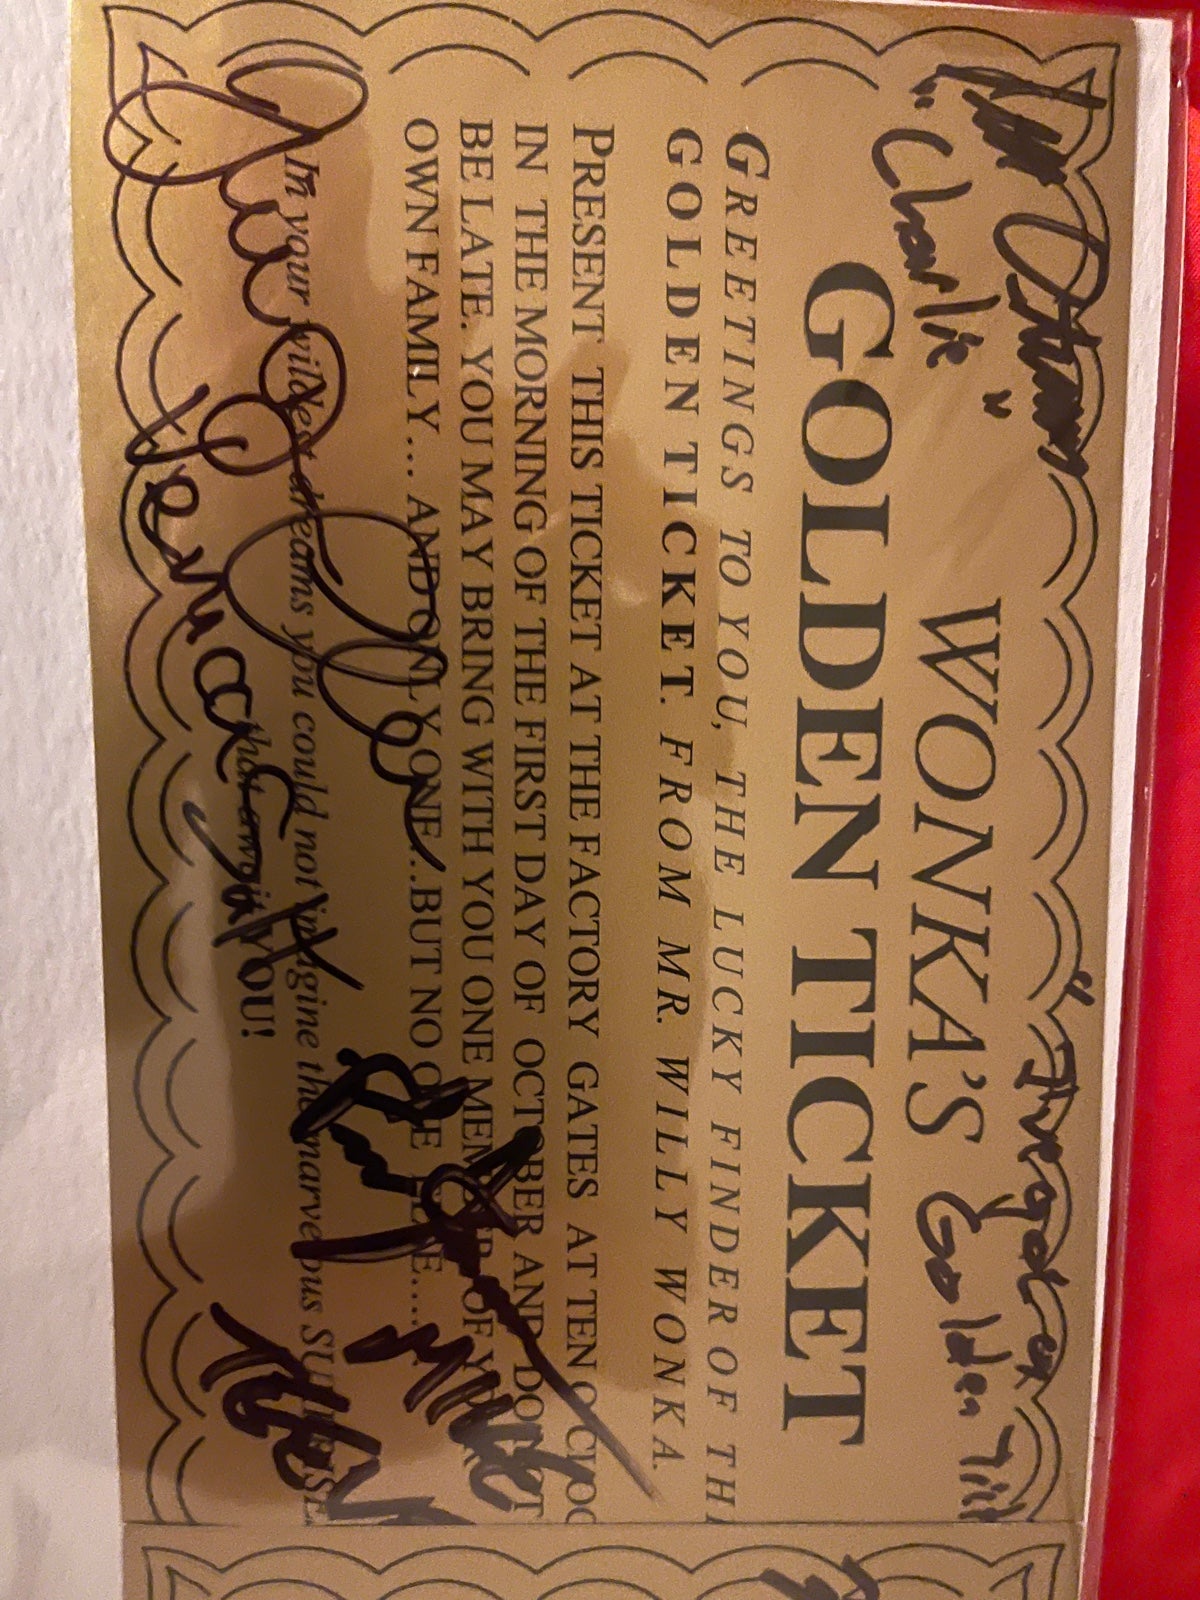 "I've got a
"Charlie"
Golden
WONKA'S
GOLDEN TICKET
GREETINGS TO YOU, THE LUCKY FINDER OF THI
GOLDEN TICKET. FROM MR. WILLY WONKA.
PRESENT THIS TICKET AT THE FACTORY GATES AT TEN O'CLOC
IN THE MORNING OF THE FIRST DAY OF OCTOBER AND DO NOT
BE LATE. YOU MAY BRING WITH YOU ONE MEMBER OF YOUR
OWN FAMILY... AND ONLY ONE...BUT NO ONE ELSE.....
In your wildest dreams you could not imagine the marvelous SURPRISE
that await YOU!
Julie Dawn Cole
Veruca Salt
Mike